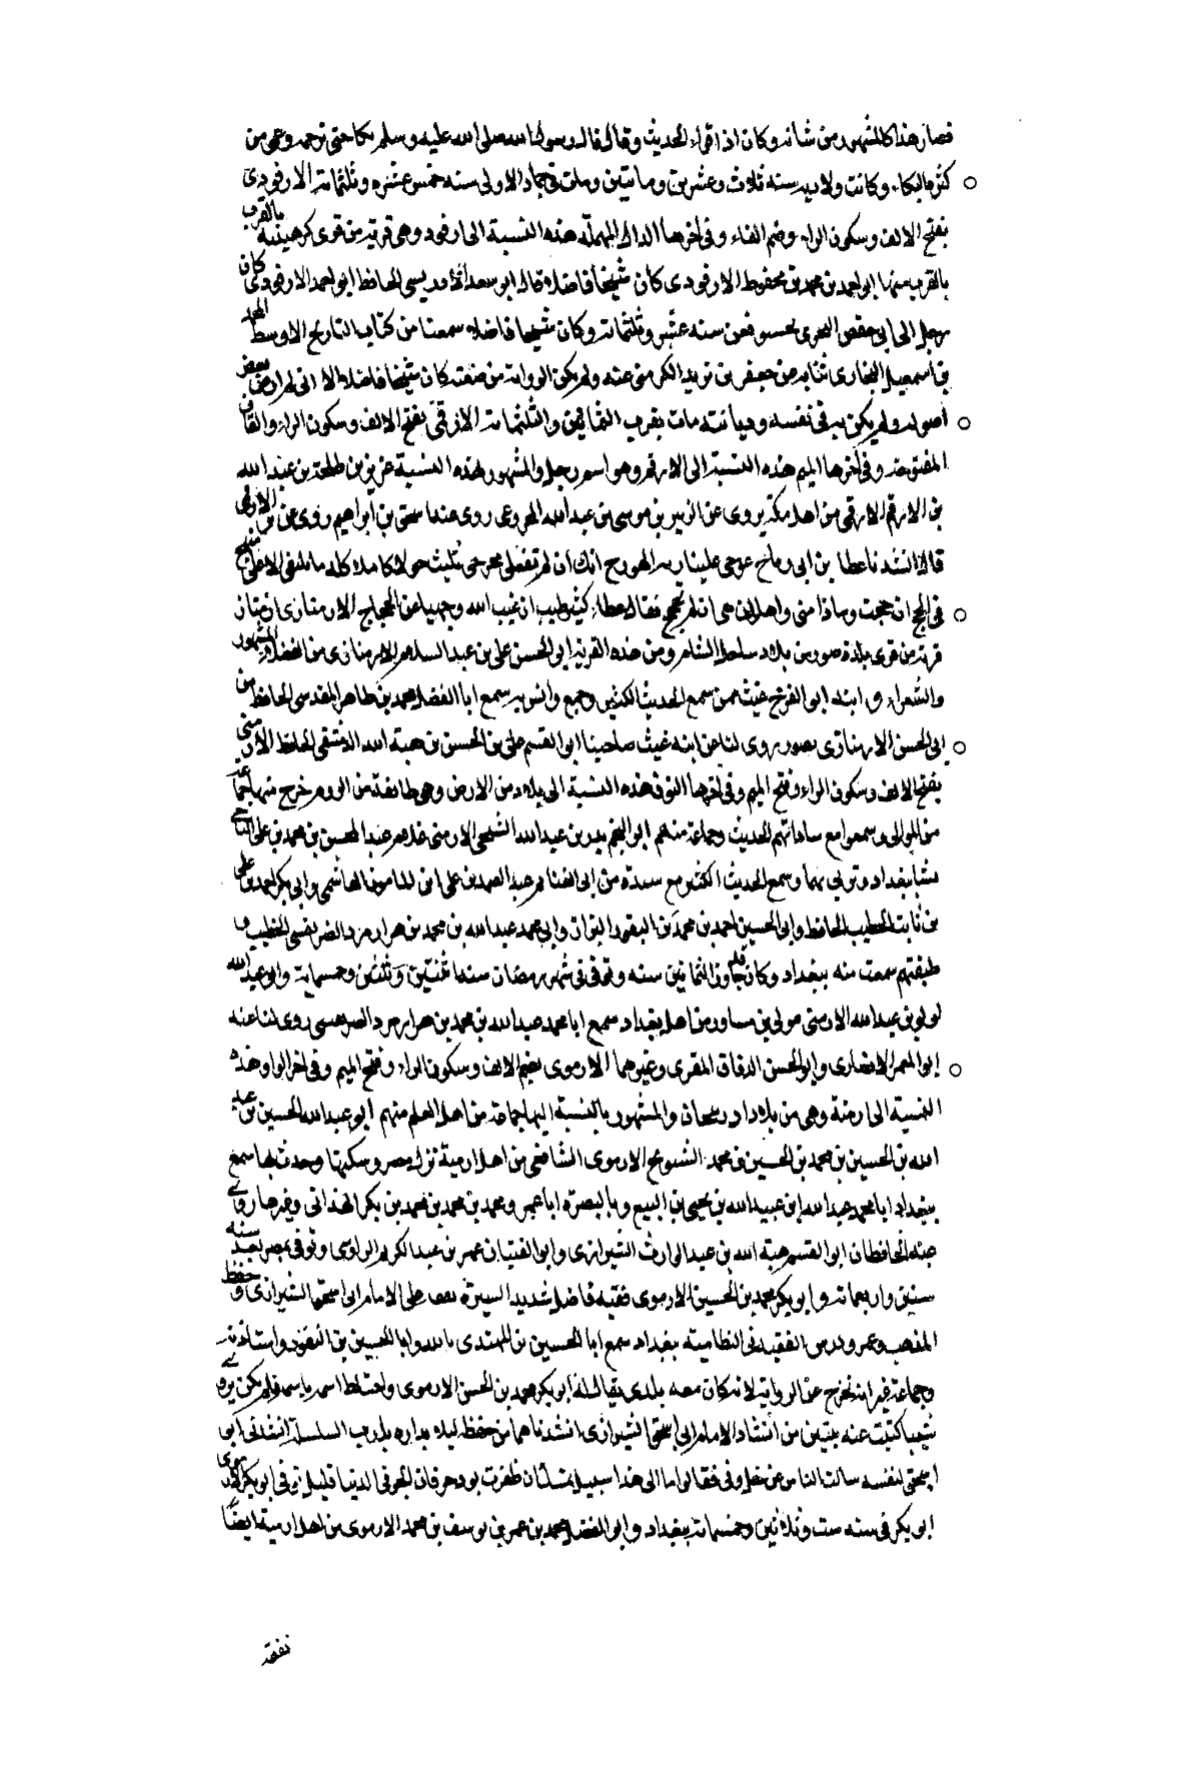 فصار هذا كالمشهور من شانه وكان اذا قراء الحديث وقال قال رسول الله صلى الله عليه وسلم بكا حتى نرحمه وعمى من
كثرة البكاء وكانت ولادته سنه ثلاث وعشرين وماتيين ومات في جماد الاولى سنه خمس عشره وثلثمائة الارفودى
بفتح الالف وسكون الراء وضم الفاء وفي اخرها الدال المهملة هذه النسبة الى ارفود وهي قرية من قرى كرمينية بالقرب
بالقرب منها ابو احمد بن محمد بن محفوظ الارفودى كان شيخا فاضلا قال ابو سعد الادريسى الحافظ ابو احمد الارفودى كان
يرحل الى ابى حفص البحرى سنه عشر وثلثمائة وكان شيخا فاضلا سمعنا من كتاب التاريخ الاوسط لمحمد
بن اسمعيل البخارى ثنا به عن جعفر بن نزير الكرمنى عنه ولم يكن الرواية من صنعته كان شيخا فاضلا الا انى لم ارض بعض
اصوله ولم يكن به في نفسه وديانته مات بقرب الثمانين والثلثمائة الارقمى بفتح الالف وسكون الراء والقاف
المفتوحة وفي اخرها الميم هذه النسبة الى الارقم وهو اسم رجل والمشهور بهذه النسبة عزيز بن طلحة بن عبد الله
بن الارقم الارقمى من اهل مكة يروى عن الزبير بن موسى بن عبد الله المخزومى روى عنه اسحق بن ابراهيم روى عن الارقمى
قال انشدنا عطا بن ابى رباح عوجى علينا ربة الهودج انك ان لم تفعلى تحرجى تلبث حولا كاملا كله ما نلتقى الا على منهج
في الحج ان حجت وماذا منى واهلان هى ان لم تحجج فقال عطاء كثير طيب ان غيب الله وجهها عن الحجاج الارمنازى ارمناز
قرية من قرى بلدة صور من بلاد ساحل الشام ومن هذه القرية ابو الحسن على بن عبد السلام الارمنازى من الفضلاء المشهورين
والشعراء وابنه ابو الفرج غيث ممن سمع الحديث الكثير وجمع وانس به سمع ابا الفضل محمد بن طاهر المقدسى الحافظ من
ابى الحسن الارمنازى بصور يروى لنا عن ابنه غيث صاحبنا ابو القسم على بن الحسن بن هبة الله الدمشقى الحافظ الارمنى
بفتح الالف وسكون الراء وفتح الميم وفي اخرها النون هذه النسبة الى بلاد من الارض وهى طائفة من الروم خرج منها جماعة
من الموالى وسمعوا مع ساداتهم الحديث وجماعة منهم ابو النجم بدر بن عبد الله الشيحى الارمنى غلام عبد المحسن بن محمد بن على التاجر
نشا ببغداد وتربى بها وسمع الحديث الكثير مع سيده من ابى الغنائم عبد الصمد بن على ابن المامون الهاشمى وابى بكر احمد بن على
بن ثابت الخطيب الحافظ وابى الحسين احمد بن محمد بن النقور البزاز وابى محمد عبد الله بن محمد بن هزارمرد الصريفينى الخطيب و
طبقتهم سمعت منه ببغداد وكان قد جاوز الثمانين سنه وتوفى في شهر رمضان سنه اثنتين وثلثين وخمسمائة وابو عبد الله
لولو بن عبد الله الارمنى مولى بن مساور من اهل بغداد سمع ابا محمد عبد الله بن محمد بن هزارمرد الصريفينى روى لنا عنه
ابو المعمر الانصارى وابو الحسن الدقاق المقرى وغيرهما الارموى بضم الالف وسكون الراء وفتح الميم وفي اخر الواو هذه
النسبة الى ارمية وهى من بلاد ادربيجان والمشهور بالنسبة اليها جماعة من اهل العلم منهم ابو عبد الله الحسين بن عبد
الله بن الحسين بن محمد بن الحسين بن محمد الشويخ الارموى الشافعى من اهل ارمية نزل مصر وسكنها وحدث بها سمع
ببغداد ابا محمد عبد الله ابن عبيد الله بن يحيى بن البيع وبالبصرة ابا عمر ومحمد بن محمد بن محمد بن بكر الهزانى وغيرهما روى
عنه الحافظان ابو القسم هبة الله بن عبد الوارث الشيرازى وابو الفتيان عمر بن عبد الكريم الرواسى وتوفى بمصر بعد سنه
ستين واربعمائة وابو بكر محمد بن الحسين الارموى فقيه فاضل شديد السيرة تفقه على الامام ابى اسحق الشيرازى وحفظ
المذهب وعمر ودرس الفقيه في النظامية ببغداد سمع ابا الحسين بن المهتدى بالله وابا الحسين بن النقور واستاذه
وجماعة غير انه تحرج عن الرواية لانه كان معه بلدى يقال له ابو بكر محمد بن الحسن الارموى واختلط اسمه باسمه فلم يكن يروى
شيئا كتبت عنه بيتين من انشاد الامام ابى اسحق الشيرازى انشدناهما من حفظه ليلا بداره بدرب السلسلة انشدنى ابى
اسحق لنفسه سالت الناس عن خل وفى فقالوا ما الى هذا سبيل تمسك ان ظفرت بود حر فان الحر في الدنيا قليل توفى ابو بكر الارموى
ابو بكر في سنه ست وثلاثين وخمسمائة ببغداد وابو الفضل محمد بن عمر بن يوسف بن محمد الارموى من اهل ارمية ايضا
تفقه